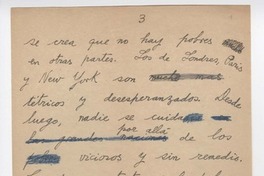 3
se crea que no hay pobres
en otras partes. Los de Londres, París
y New York son mucho más
tétricos y desesperanzados. Desde
luego, nadie se cuida
por allá
de los
viciosos y sin remedio.